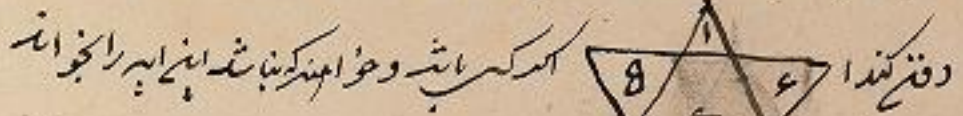 دفن کند ا اگر کسی باشد و خواهند که نباشد این ایه را بخواند
۱
8 ع